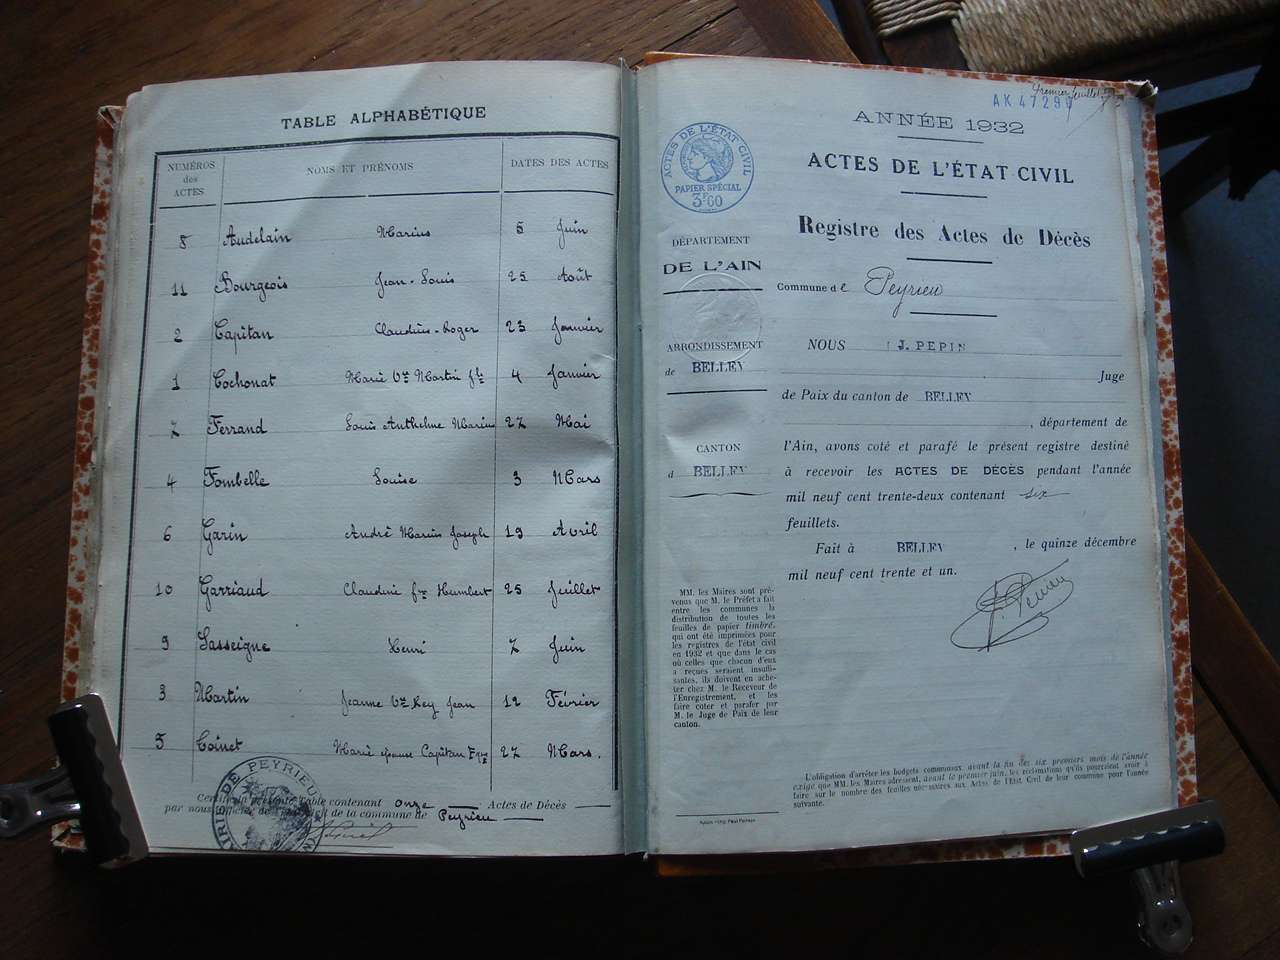 TABLE ALPHABÉTIQUE
NUMÉROS des ACTES NOMS ET PRÉNOMS DATES DES ACTES
8 Audelain Marius 5 Juin
11 Bourgeois Jean-Louis 25 Août
2 Capitan Claudius-Roger 23 Janvier
1 Cochonat Marie Vve Martin fs 4 Janvier
7 Ferrand Louis Anthelme Marius 27 Mai
4 Fombelle Louise 3 Mars
6 Garin André Marius Joseph 19 Avril
10 Garriaud Claudine fme Humbert 25 Juillet
9 Lasseigne Henri 7 Juin
3 Martin Jeanne Vve Rey Jean 12 Février
5 Coinet Marie épouse Capitan 27 Mars.
présente table contenant onze Actes de Décès
par nous de la commune de Peyrieu
MAIRIE DE PEYRIEU
Premier feuillet
AK 4729
ANNÉE 1932
ACTES DE L'ÉTAT CIVIL
Registre des Actes de Décès
ACTES DE L'ÉTAT CIVIL
PAPIER SPÉCIAL
3F60
DÉPARTEMENT
DE L'AIN
ARRONDISSEMENT
de BELLEY
CANTON
d BELLEY
Commune de Peyrieu
NOUS J. PEPIN
Juge
de Paix du canton de BELLEY
, département de
l'Ain, avons coté et parafé le présent registre destiné
à recevoir les ACTES DE DÉCÈS pendant l'année
mil neuf cent trente-deux contenant six
feuillets.
Fait à BELLEY , le quinze décembre
mil neuf cent trente et un.
MM. les Maires sont pré-
venus que M. le Préfet a fait
entre les communes la
distribution de toutes les
feuilles de papier timbré,
qui ont été imprimées pour
les registres de l'état civil
en 1932 et que dans le cas
où celles que chacun d'eux
a reçues seraient insuffi-
santes, ils doivent en ache-
ter chez M. le Receveur de
l'Enregistrement, et les
faire coter et parafer par
M. le Juge de Paix de leur
canton.
L'obligation d'arrêter les budgets communaux avant la fin des six premiers mois de l'année
exige que MM. les Maires adressent, avant le premier juin, les réclamations qu'ils pourraient avoir à
faire sur le nombre des feuilles nécessaires aux Actes de l'État Civil de leur commune pour l'année
suivante.